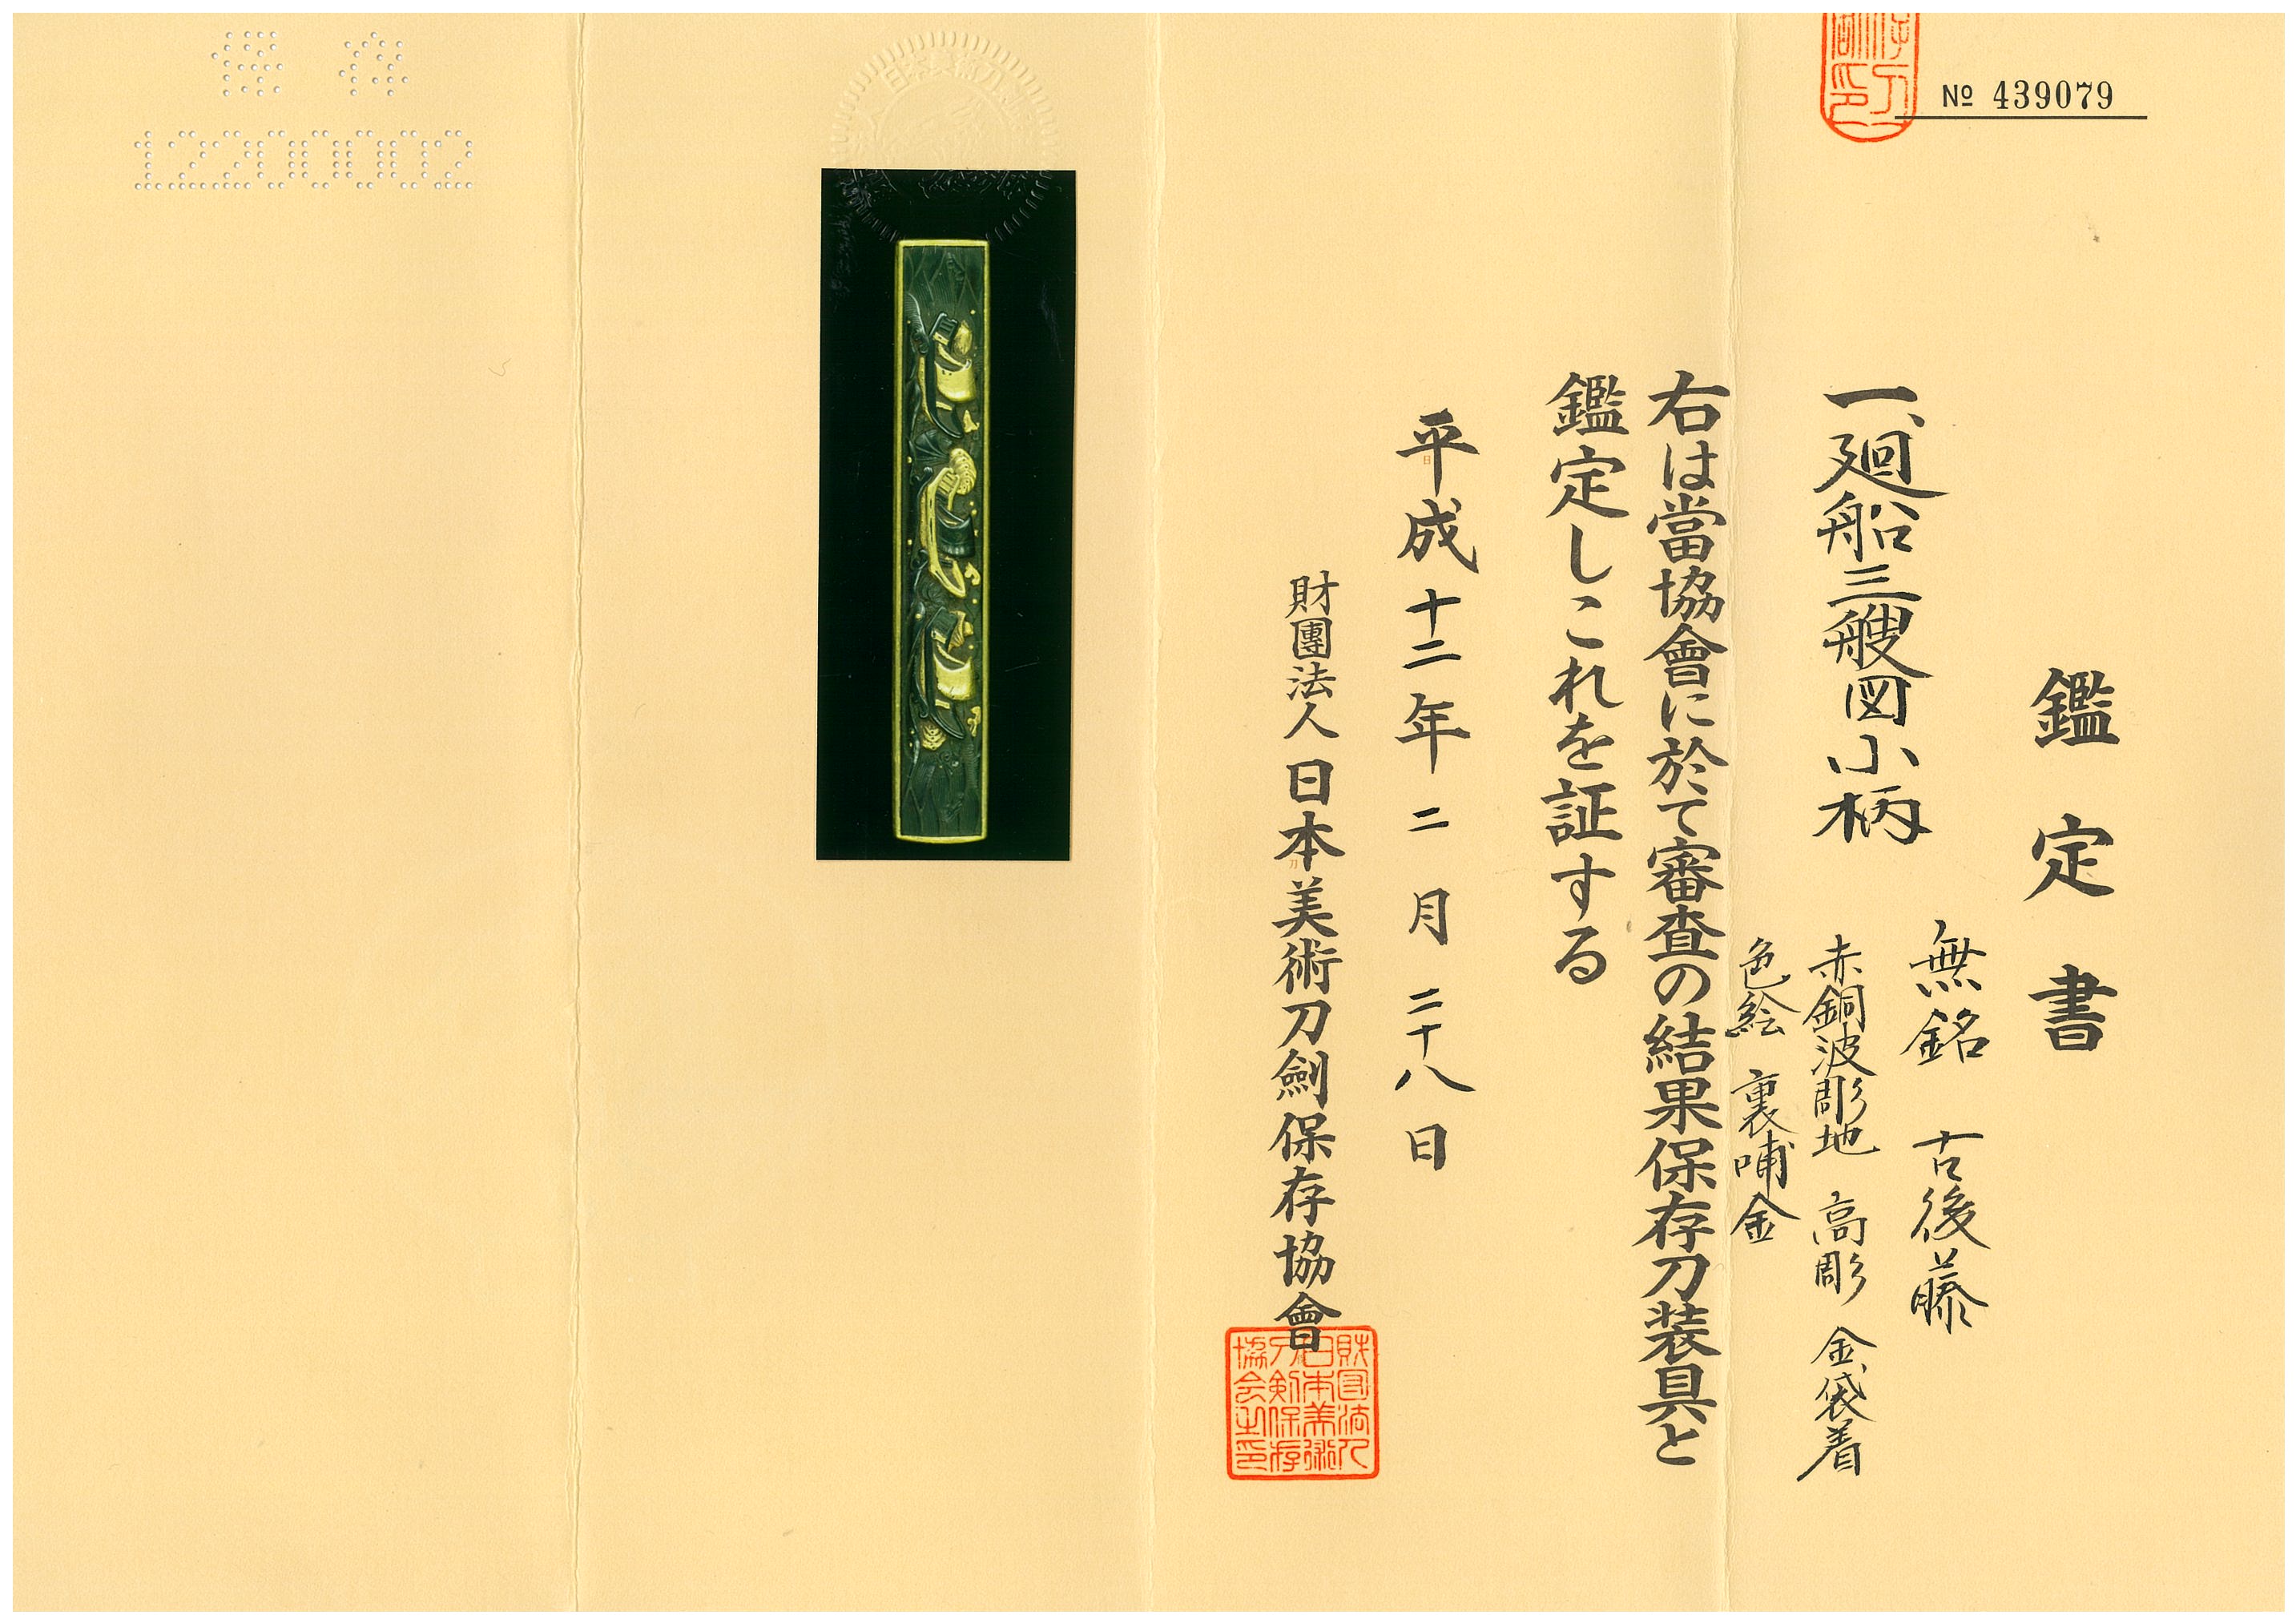 № 439079
鑑定書
一、廻船三艘図小柄
無銘 古後藤
赤銅波彫地 高彫 金袋着
色絵 裏哺金
右は當協會に於て審査の結果保存刀装具と
鑑定しこれを証する
平成十二年二月二十八日
財團法人日本美術刀劍保存協會
財団法人
日本美術
刀剣保存
協会之印
保存
12200002